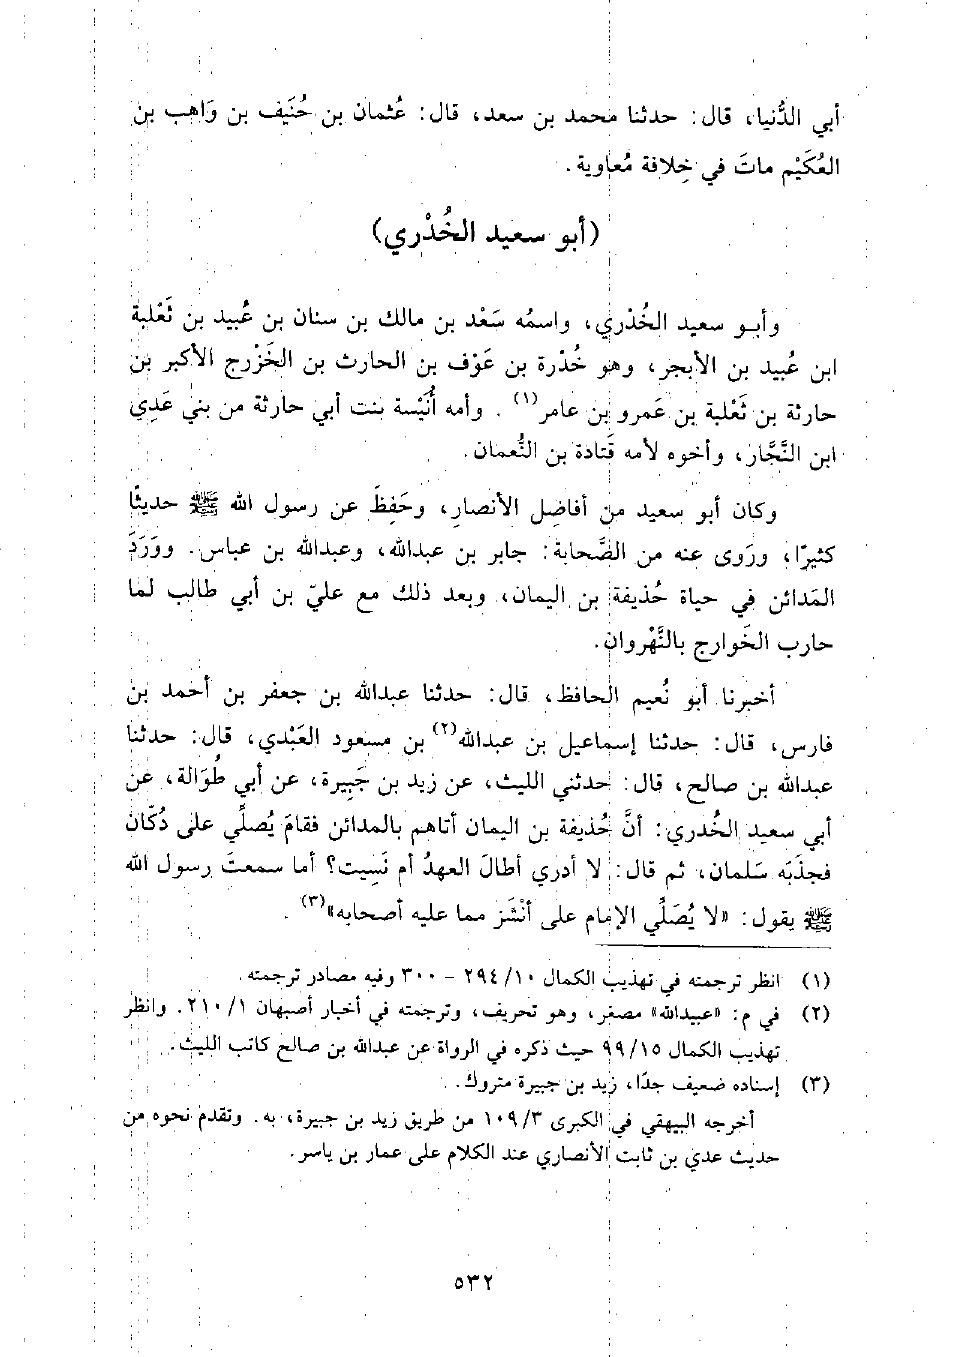 أبي الدُّنيا، قال: حدثنا محمد بن سعد، قال: عُثمان بن حُنَيف بن وَاهب بن
العُكَيْم ماتَ في خِلافة مُعاوية.
(أبو سعيد الخُدْري)
وأبو سعيد الخُدْري، واسمُه سَعْد بن مالك بن سنان بن عُبيد بن ثَعْلبة
ابن عُبيد بن الأبجر، وهو خُدْرة بن عَوْف بن الحارث بن الخَزْرج الأكبر بن
حارثة بن ثَعْلبة بن عَمرو بن عامر(١). وأمه أُنَيْسة بنت أبي حارثة من بني عَدِي
ابن النَّجَّار، وأخوه لأمه قَتادة بن النُّعمان.
وكان أبو سعيد من أفاضِل الأنصارِ، وحَفِظَ عن رسول الله ﷺ حديثًا
كثيرًا، ورَوى عنه من الصَّحابة: جابر بن عبدالله، وعبدالله بن عباس. ووَرَدَ
المَدائن في حياة حُذيفة بن اليمان، وبعد ذلك مع عليّ بن أبي طالب لما
حارب الخَوارج بالنَّهْروان.
أخبرنا أبو نُعيم الحافظ، قال: حدثنا عبدالله بن جعفر بن أحمد بن
فارس، قال: حدثنا إسماعيل بن عبدالله(٢) بن مسعود العَبْدي، قال: حدثنا
عبدالله بن صالح، قال: حدثني الليث، عن زيد بن جَبِيرة، عن أبي طُوَالة، عن
أبي سعيد الخُدري: أنَّ حُذيفة بن اليمان أتاهم بالمدائن فقامَ يُصلِّي على دُكّان
فجذَبَه سَلمان، ثم قال: لا أدري أطالَ العهدُ أم نَسِيت؟ أما سمعتَ رسول الله
ﷺ يقول: «لا يُصَلِّي الإمام على أنْشَز مما عليه أصحابه»(٣).
(١) انظر ترجمته في تهذيب الكمال ١٠/ ٢٩٤ - ٣٠٠ وفيه مصادر ترجمته.
(٢) في م: «عبيدالله» مصغر، وهو تحريف، وترجمته في أخبار أصبهان ١/ ٢١٠. وانظر
تهذيب الكمال ١٥/ ٩٩ حيث ذكره في الرواة عن عبدالله بن صالح كاتب الليث.
(٣) إسناده ضعيف جدًا، زيد بن جبيرة متروك.
أخرجه البيهقي في الكبرى ٣/ ١٠٩ من طريق زيد بن جبيرة، به. وتقدم نحوه من
حديث عدي بن ثابت الأنصاري عند الكلام على عمار بن ياسر.
٥٣٢